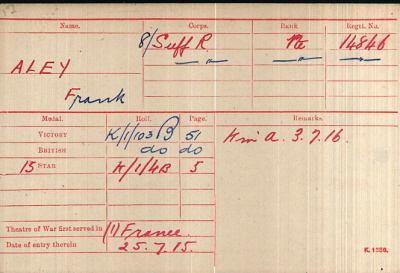 Name. Corps. Rank. Regtl. No.
8/Suff R. Pte 14846
ALEY " " " "
Frank
Medal. Roll. Page. Remarks.
VICTORY K/1/103 B 51 K in a. 3.7.16.
BRITISH do do
15 STAR K/1/4B 5
Theatre of War first served in (1) France.
Date of entry therein 25.7.15.
K. 1380.